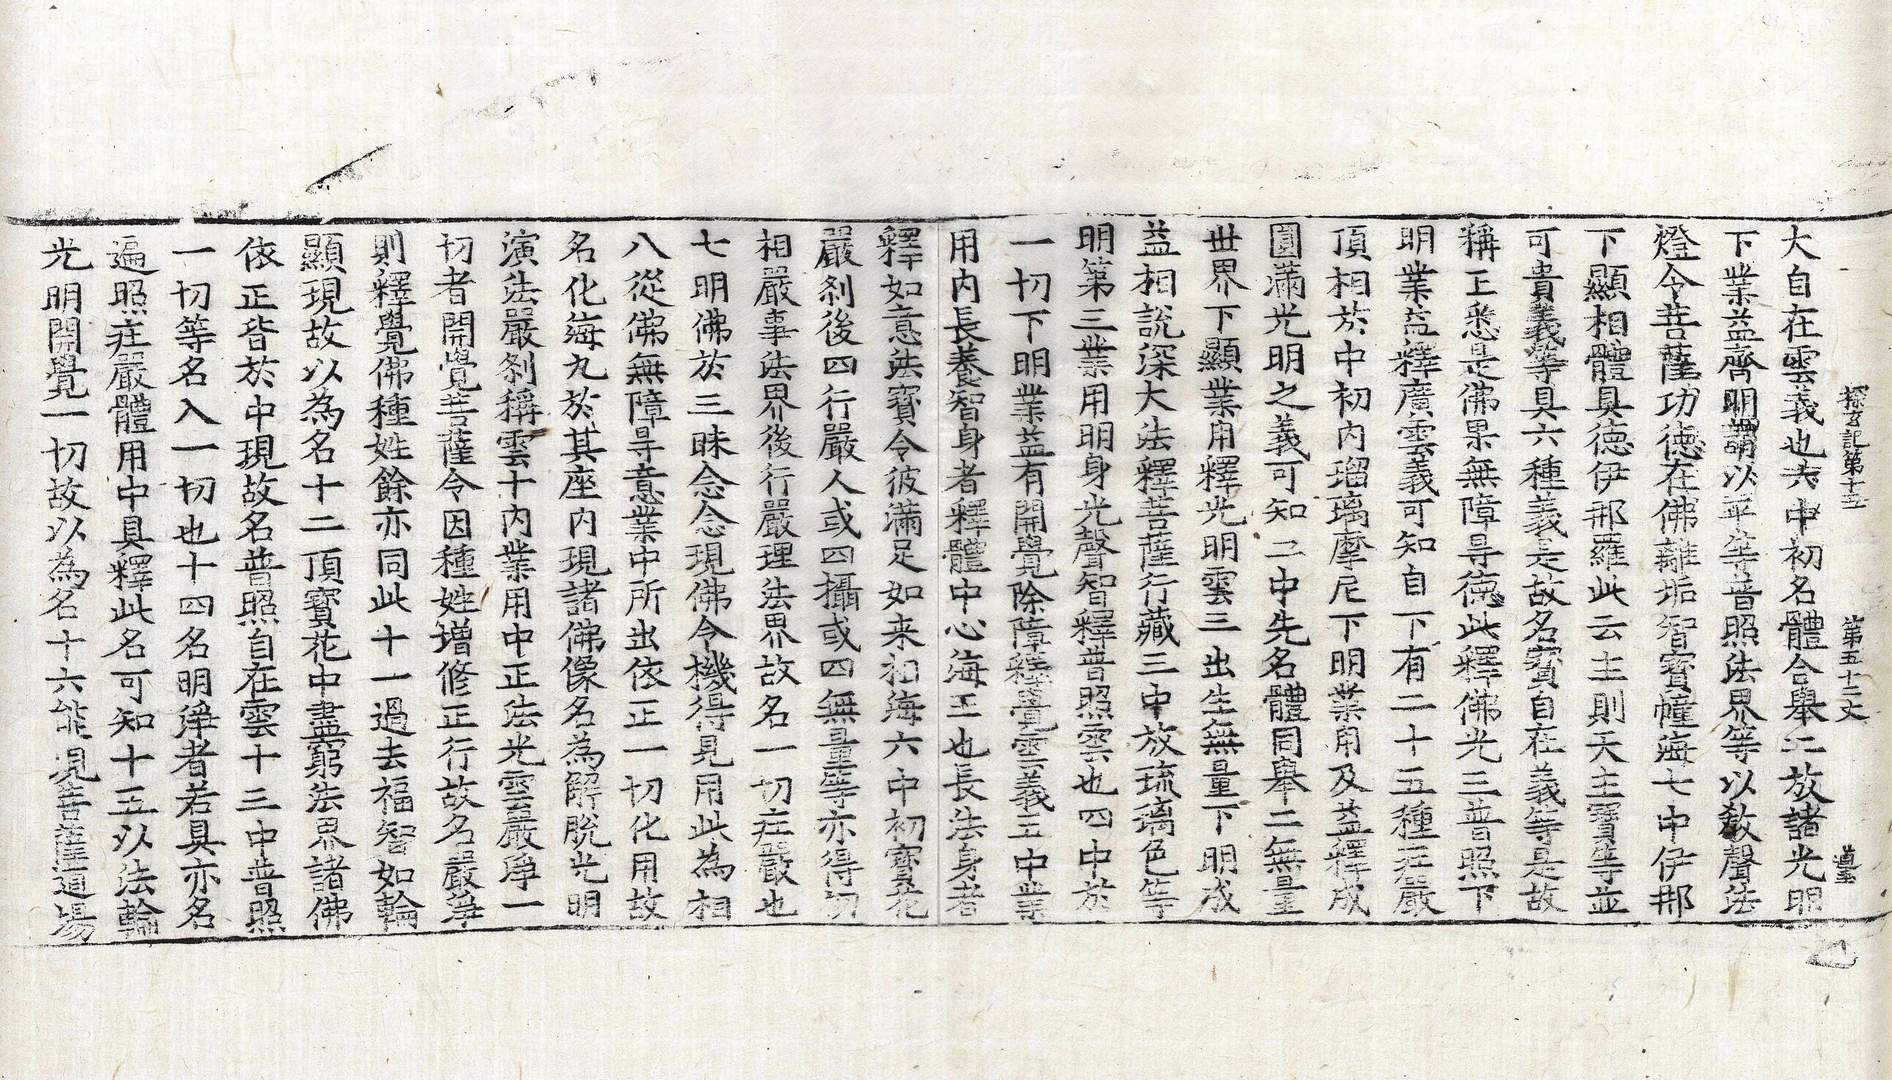 探玄記第十五　第五十二丈
大自在雲義也六中初名體合舉二放諸光明
下業益齊明謂以平等普照法界等以敎聲法
燈令菩薩功德在佛離垢智寶幢海七中伊那
下顯相體具德伊那羅此云主則天主寶等並
可貴義等具六種義是故名寶自在義等是故
稱王悉是佛果無障㝵德此釋佛光三普照下
明業益釋廣雲義可知自下有二十五種莊嚴
頂相於中初內瑠璃摩尼下明業用及益釋成
圓滿光明之義可知二中先名體同舉二無量
世界下顯業用釋光明雲三出生無量下明成
益相說深大法釋菩薩行藏三中放琉璃色等
明第三業用明身光聲智釋普照雲也四中於
一切下明業益有開覺除障釋覺雲義五中業
用內長養智身者釋體中心海王也長法身者
釋如意法寶令彼滿足如来相海六中初寶花
嚴刹後四行嚴人或四攝或四無量等亦得初
相嚴事法界後行嚴理法界故名一切莊嚴也
七明佛於三昧念念現佛令機得見用此為相
八從佛無障㝵意業中所出依正一切化用故
名化海九於其座內現諸佛像名為解脫光明
演法嚴刹稱雲十內業用中正法光雲嚴淨一
切者開覺菩薩令因種姓增修正行故名嚴淨
則釋覺佛種姓餘亦同此十一過去福智如輪
顯現故以為名十二頂寶花中盡窮法界諸佛
依正皆於中現故名普照自在雲十三中普照
一切等名入一切也十四名明淨者若具亦名
遍照莊嚴體用中具釋此名可知十五以法輪
光明開覺一切故以為名十六能現菩薩道場